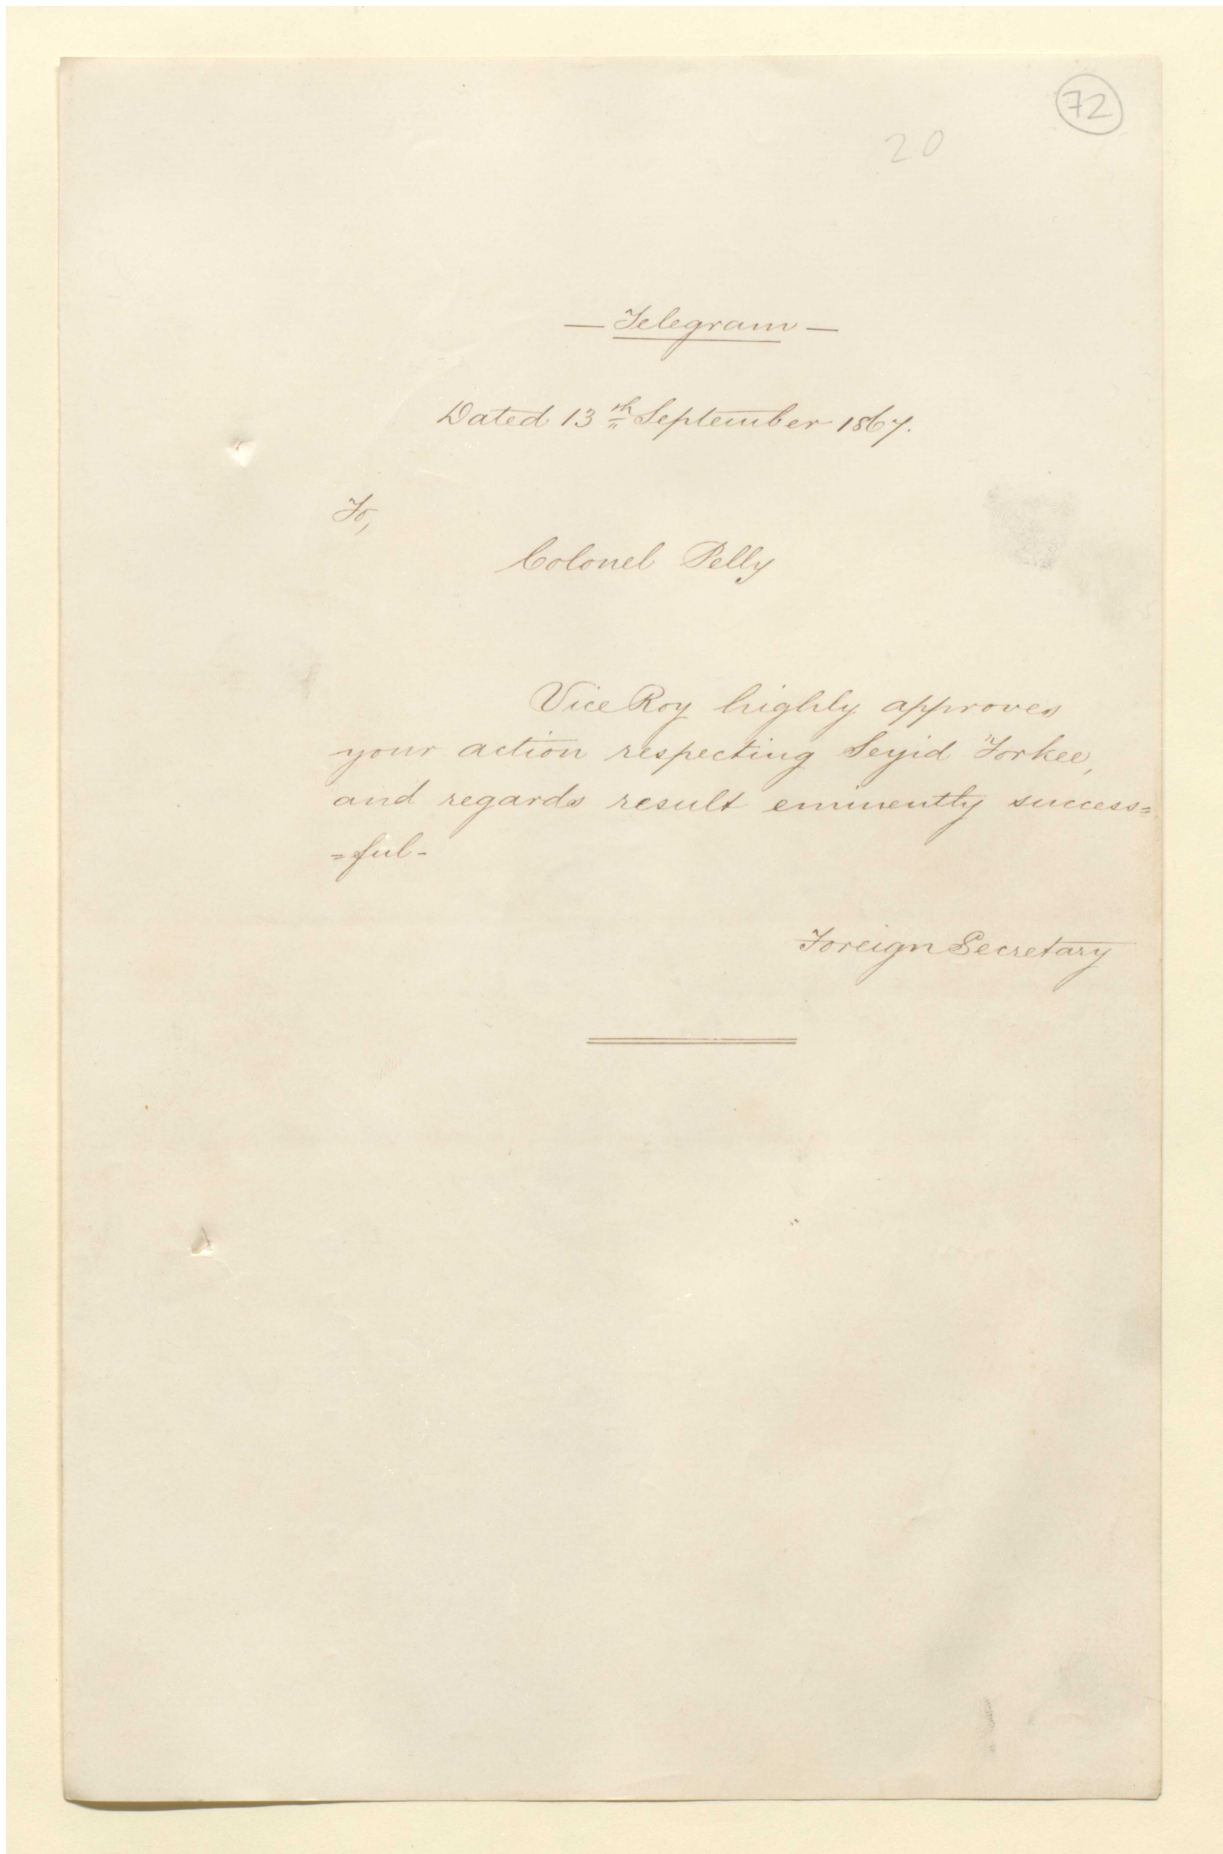 72
20
— Telegram —
Dated 13th September 1867.
To,
Colonel Pelly
Vice Roy highly approves
your action respecting Seyid Torkee,
and regards result eminently success=
=ful-
Foreign Secretary